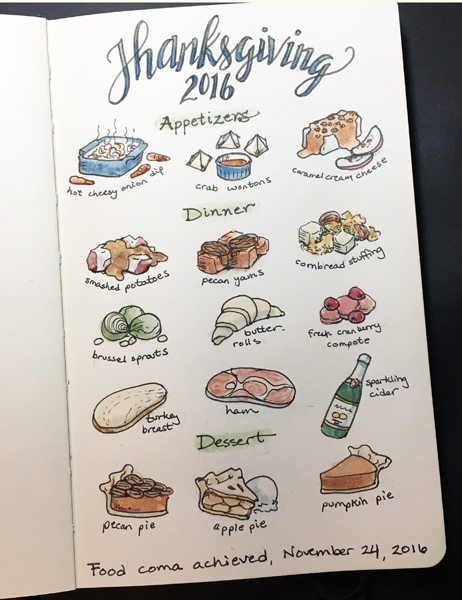 Thanksgiving
2016
Appetizers
hot cheesy onion dip
crab wontons
caramel cream cheese
Dinner
smashed potatoes
pecan yams
cornbread stuffing
brussel sprouts
butter-
rolls
fresh cranberry
compote
turkey
breast
ham
sparkling
cider
Dessert
pecan pie
apple pie
pumpkin pie
Food coma achieved, November 24, 2016